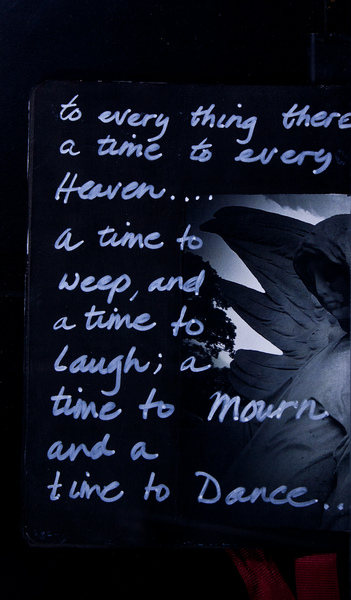 to every thing there
a time to every
Heaven....
a time to
weep, and
a time to
laugh; a
time to Mourn
and a
time to Dance...